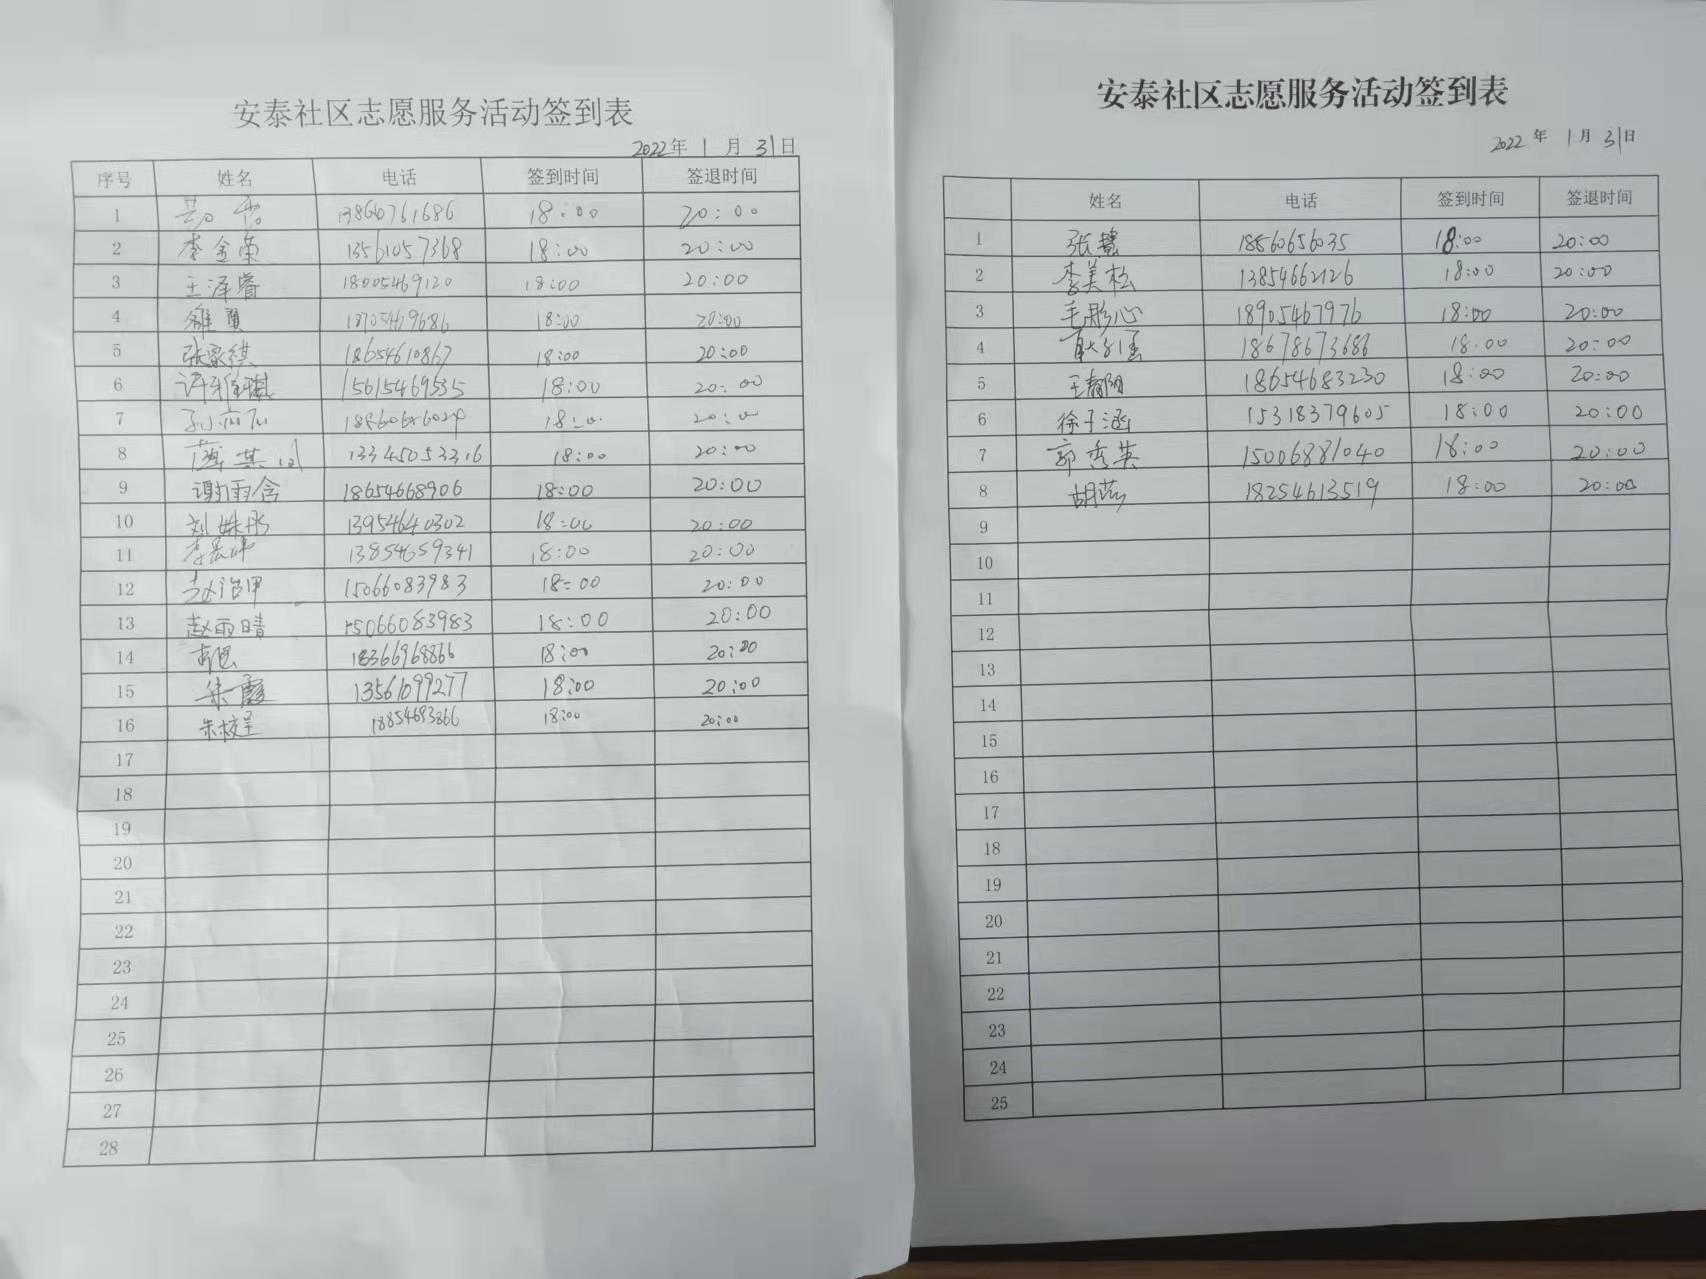 安泰社区志愿服务活动签到表
2022年 1 月 31日
序号 姓名 电话 签到时间 签退时间
1 13860761686 18:00 20:00
2 李金荣 13561057368 18:00 20:00
3 王泽睿 18005469120 18:00 20:00
4 18:00 20:00
5 张家祺 18654610867 18:00 20:00
6 15615469535 18:00 20:00
7 18:00 20:00
8 13345053316 18:00 20:00
9 谢雨含 18654668906 18:00 20:00
10 刘姝彤 13954640302 18:00 20:00
11 13854659341 18:00 20:00
12 15066083983 18:00 20:00
13 赵雨晴 15066083983 18:00 20:00
14 18366968866 18:00 20:00
15 朱霞 13561099277 18:00 20:00
16 18854693866 18:00 20:00
17
18
19
20
21
22
23
24
25
26
27
28
安泰社区志愿服务活动签到表
2022 年 1 月 31日
姓名 电话 签到时间 签退时间
1 张慧 18860656035 18:00 20:00
2 李美松 13854662126 18:00 20:00
3 毛彤心 18905467976 18:00 20:00
4 18678673688 18:00 20:00
5 王春阳 18654683230 18:00 20:00
6 徐子涵 15318379605 18:00 20:00
7 郭秀英 15006881040 18:00 20:00
8 18254613519 18:00 20:00
9
10
11
12
13
14
15
16
17
18
19
20
21
22
23
24
25